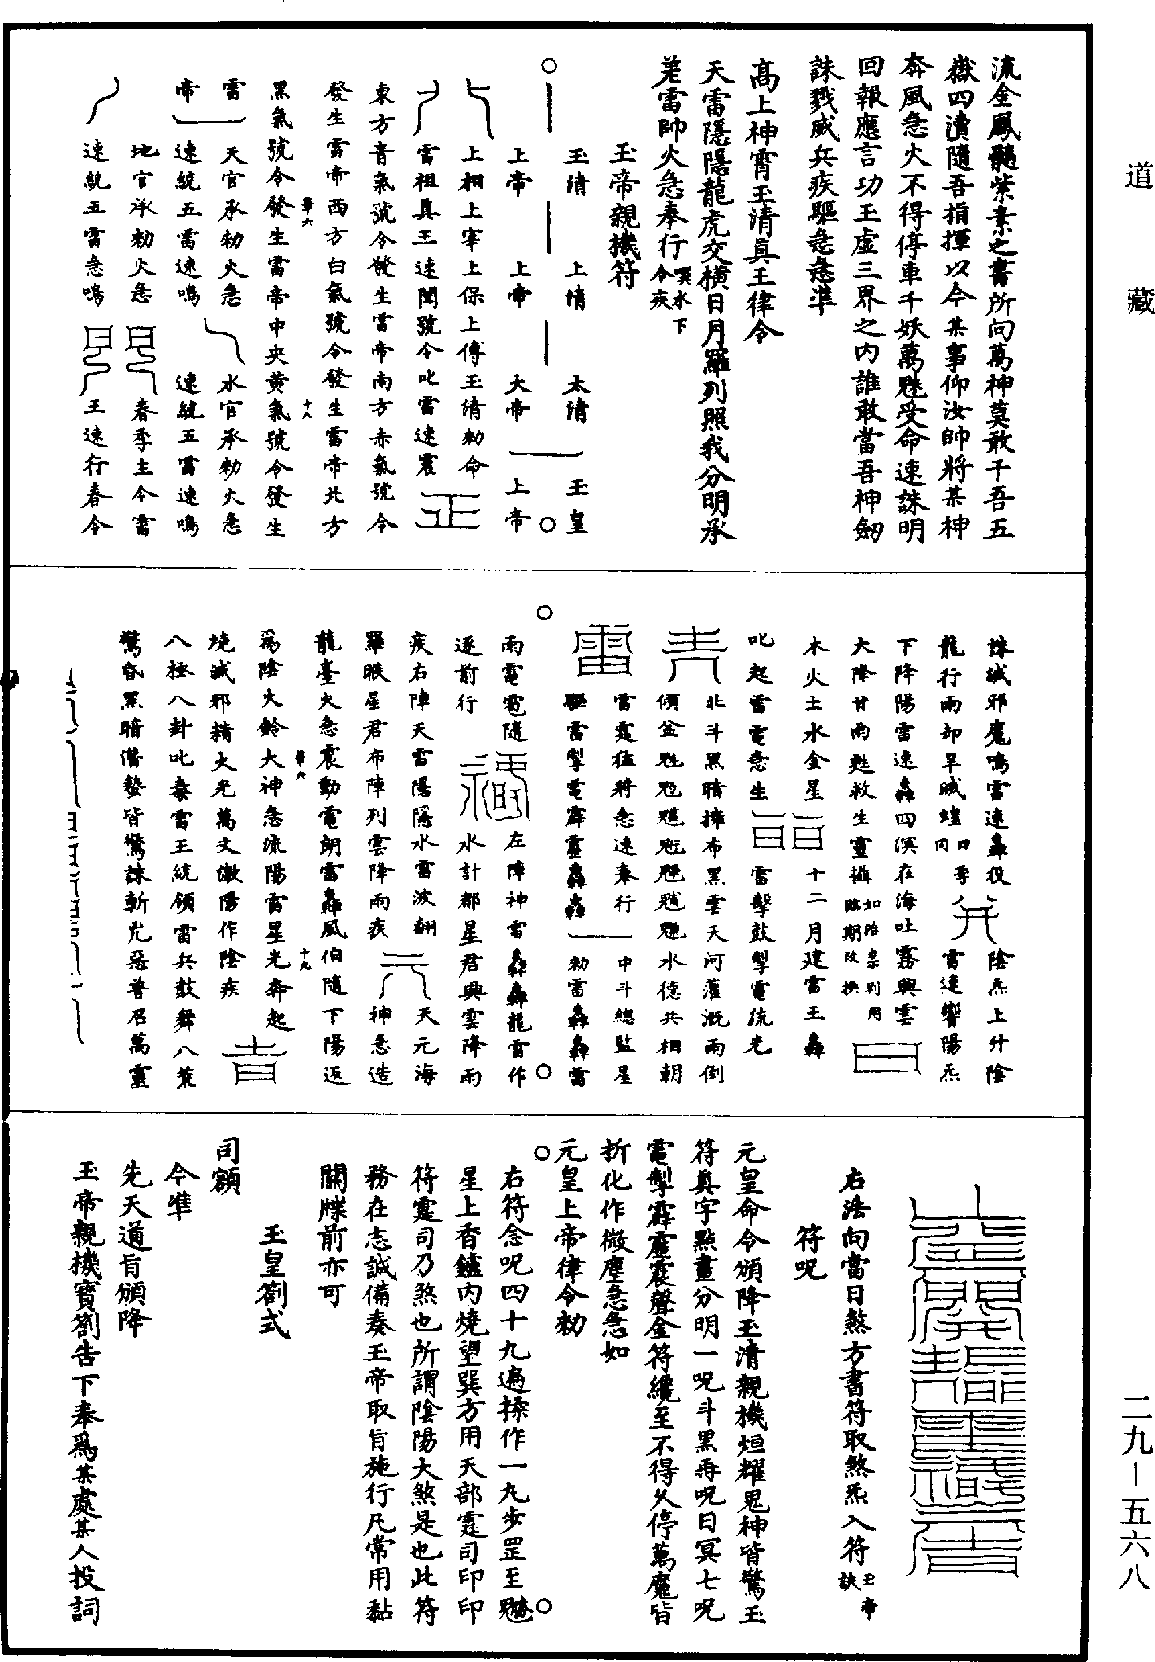 道藏
二九—五六八
流金鳳髓紫素之書所向萬神莫敢干吾五
嶽四瀆隨吾指揮以今某事仰汝帥將某神
奔風急火不得停車千妖萬魅受命速誅明
回報應言功玉虛三界之內誰敢當吾神劒
誅戮威兵疾驅急急準
高上神霄玉清真王律令
天雷隱隱龍虎交橫日月羅列照我分明承
差雷帥火急奉行 噀水下令疾
玉帝親機符
玉清 上清 太清 玉皇
上帝 上帝 大帝 上帝
上相上宰上保上傅玉清勑命
雷祖真王速聞號令叱雷速震
東方青氣號令發生雷帝南方赤氣號令
發生雷帝西方白氣號令發生雷帝北方
黑氣號令發生雷帝中央黃氣號令發生
雷 天官承勑火急 水官承勑火急
帝 速統五雷速鳴 速統五雷速鳴
地官承勑火急 春季主令雷
速統五雷急鳴 王速行春令
誅滅邪魔鳴雷速轟役 陰炁上升陰
龍行雨却旱滅蝗 雷速響陽炁
下降陽雷速轟四溟在海吐霧興雲
大降甘雨甦救生靈攝
木火土水金星 十二月建雷王轟
叱起雷電急生 雷擊鼓掣電流光
北斗黑暗擁布黑雲天河灌溉雨倒
傾盆 水德共相朝
雷霆猛將急速奉行 中斗總監星
驅雷掣電霹靂轟轟轟 勑雷轟轟雷
雨電電隨 左陣神雷轟轟龍雷作
逐前行 水計都星君興雲降雨
疾右陣天雷隱隱水雷波翻 天元海
羅睺星君布陣列雲降雨疾 神急造
龍臺火急震動電朗雷轟風伯隨下陽返
爲陰火鈴大神急流陽雷星光奔起
燒滅邪精火光萬丈激陽作陰疾
八極八卦叱轟雷王統領雷兵鼓舞八荒
驚昏黑暗潛蟄皆驚誅斬兇惡普召萬靈
右法向當日煞方書符取煞炁入符 玉帝訣
符呪
元皇命令頒降玉清親機烜耀鬼神皆驚玉
符真字點畫分明一呪斗黑再呪日冥七呪
電掣霹靂震聲金符纔至不得久停萬魔皆
折化作微塵急急如
元皇上帝律令勑
右符念呪四十九遍揉作一丸步罡至魒
星上香鑪內燒望巽方用天部霆司印印
符霆司乃煞也所謂陰陽大煞是也此符
務在志誠備奏玉帝取旨施行凡常用黏
關牒前亦可
玉皇劄式
司額
今準
先天道旨頒降
玉帝親機寶劄告下奉爲某處某人投詞